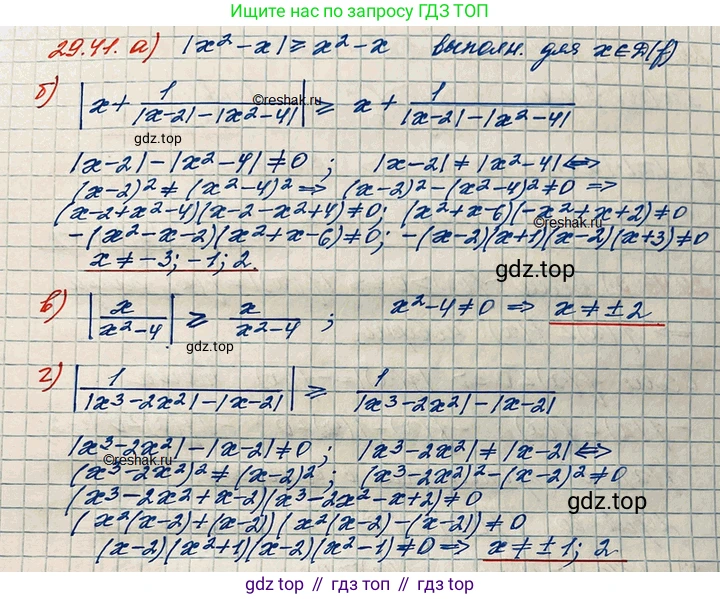 Ищите нас по запросу ГДЗ ТОП
29.41. а) |x² - x| ≥ x² - x выполн. для x∈D(f)
©reshak.ru
б) |x + 1/(|x-2| - |x²-4|)| ≥ x + 1/(|x-2| - |x²-4|)
gdz.top
|x-2| - |x²-4| ≠ 0 ; |x-2| ≠ |x²-4| ⇔
(x-2)² ≠ (x²-4)² ⇒ (x-2)² - (x²-4)² ≠ 0 ⇒
(x-2+x²-4)(x-2-x²+4) ≠ 0; (x²+x-6)(-x²+x+2) ≠ 0
-(x²-x-2)(x²+x-6) ≠ 0; -(x-2)(x+1)(x-2)(x+3) ≠ 0
x ≠ -3; -1; 2.
gdz.top
в) |x/(x²-4)| ≥ x/(x²-4) ; x²-4 ≠ 0 ⇒ x ≠ ±2
gdz.top
г) |1/(|x³-2x²| - |x-2|)| ≥ 1/(|x³-2x²| - |x-2|)
|x³-2x²| - |x-2| ≠ 0 ; |x³-2x²| ≠ |x-2| ⇔
©reshak.ru
(x³-2x²)² ≠ (x-2)² ; (x³-2x²)² - (x-2)² ≠ 0
(x³-2x²+x-2)(x³-2x²-x+2) ≠ 0
gdz.top
(x²(x-2)+(x-2))(x²(x-2)-(x-2)) ≠ 0
(x-2)(x²+1)(x-2)(x²-1) ≠ 0 ⇒ x ≠ ±1; 2
gdz.top // гдз.топ // gdz.top // гдз.топ // gdz.top